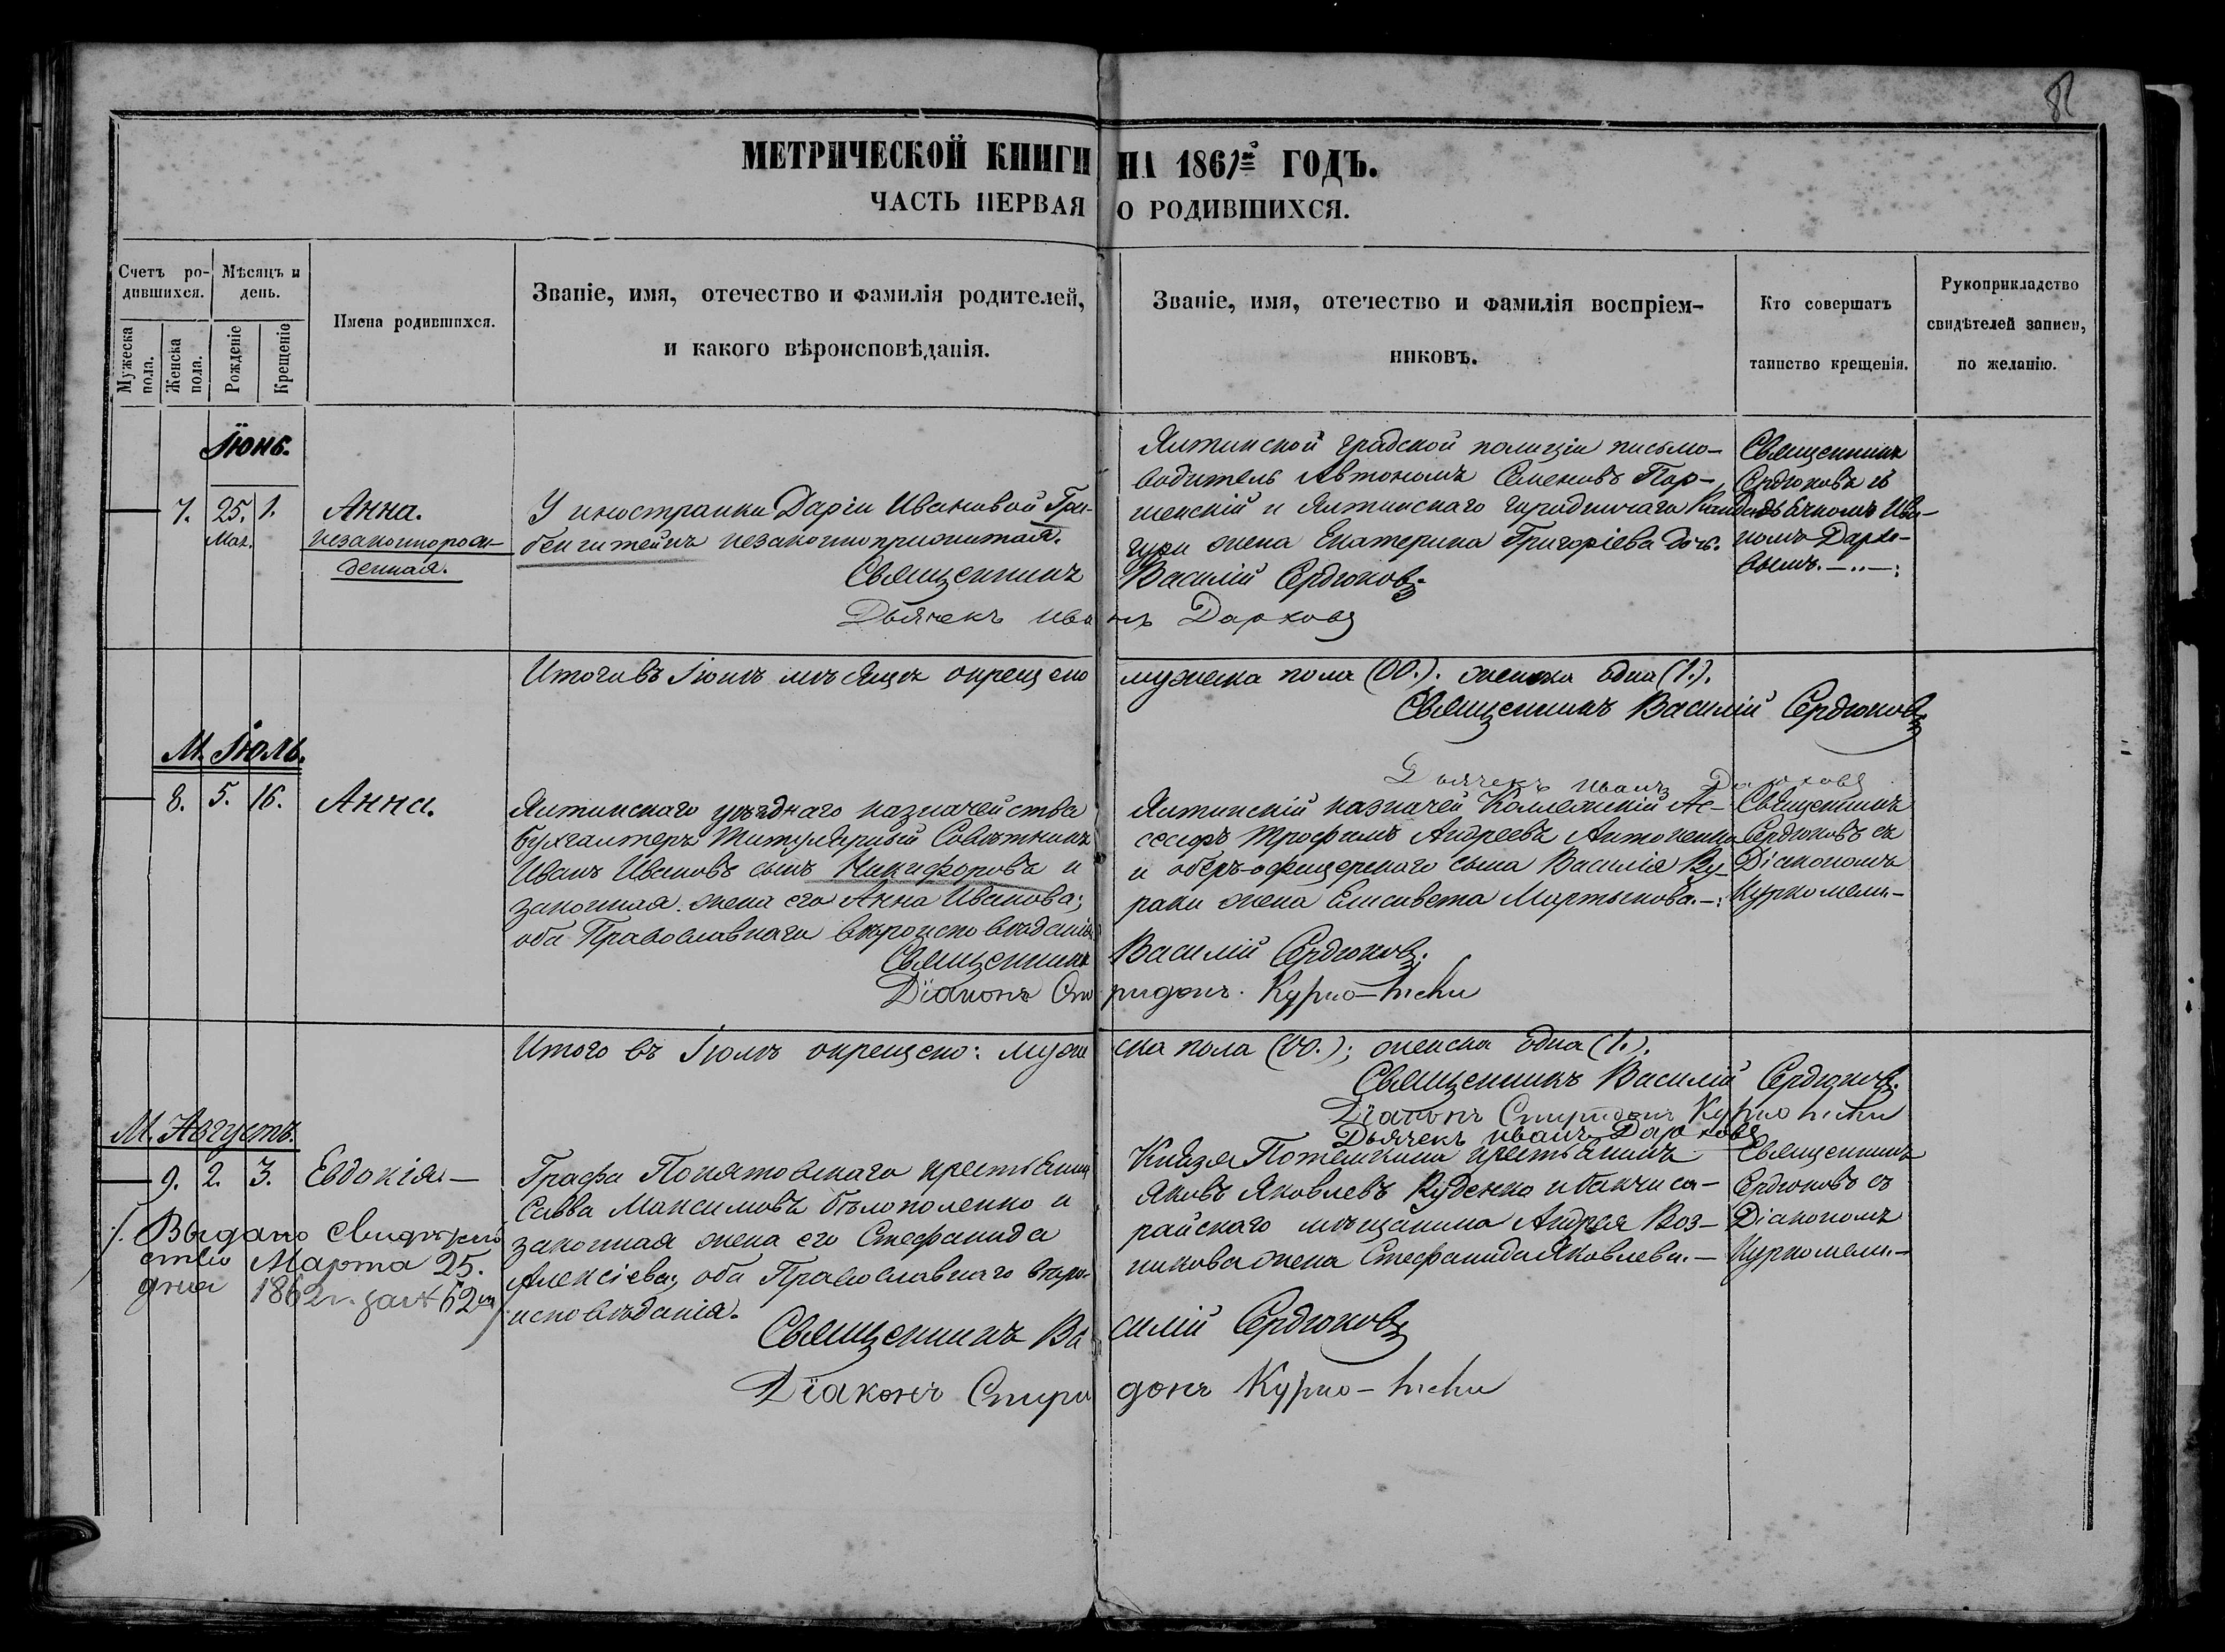 МЕТРИЧЕСКОЙ КНИГИ НА 1861й ГОДЪ.
ЧАСТЬ ПЕРВАЯ О РОДИВШИХСЯ.
Счетъ ро-
дившихся.
Мѣсяцъ и
день.
Мужеска
пола.
Женска
пола.
Рожденіе
Крещеніе
Имена родившихся.
Званіе, имя, отечество и фамилія родителей,
и какого вѣроисповѣданія.
Званіе, имя, отечество и фамилія воспріем-
никовъ.
Кто совершатъ
таинство крещенія.
Рукоприкладство
свидѣтелей записи,
по желанію.
Іюнь.
7. 25. 1.
Мая.
Анна.
незаконнорож-
денная.
У иностранки Даріи Ивановой Гри-
бенгитейнъ незаконноприжитая.
Священникъ Василій Сердюковъ.
Дьячекъ Иванъ Дарховъ
Ялтинской градской полиціи письмо-
водитель Автономъ Семеновъ Пор-
шенскій и Ялтинскаго городничаго
жена Екатерина Григоріева дочь.
Священникъ
Сердюковъ съ
Дьячкомъ Ива-
номъ Дархо-
вымъ.
Итого въ Іюнѣ мѣсяцѣ окрещено мужеска пола (00.). женска одна (1.).
Священникъ Василій Сердюковъ
Дьячекъ Иванъ Дарховъ
М. Іюль.
8. 5. 16.
Анна.
Ялтинскаго уѣзднаго казначейства
бухгалтеръ Титулярный Совѣтникъ
Иванъ Ивановъ сынъ Никифоровъ и
законная жена его Анна Иванова;
оба Православнаго вѣроисповѣданія
Священникъ Василій Сердюковъ.
Діаконъ Спиридонъ Курко-мели
Ялтинскій казначей Коллежскій Ас-
сесоръ Трофимъ Андреевъ Антоненко
и оберъ-офицерскаго сына Василія Ку-
раки жена Елисавета Мартынова.
Священникъ
Сердюковъ съ
Діакономъ
Куркомели-
Итого въ Іюлѣ окрещено: мужеска пола (00.); женска одна (1.).
Священникъ Василій Сердюковъ.
Діаконъ Спиридонъ Курко мели
Дьячекъ Иванъ Дарховъ
М. Августъ.
9. 2. 3.
Евдокія.
Графа Понятовскаго крестьянинъ
Савва Максимовъ Бѣлополенко и
законная жена его Стефанида
Алексіева; оба Православнаго вѣро-
исповѣданія.
Священникъ Василій Сердюковъ
Діаконъ Спиридонъ Курко-мели
Князя Потемкина крестьянинъ
Яковъ Яковлевъ Руденко и бакчиса-
райскаго мѣщанина Андрея Воз-
никова жена Стефанида Яковлева.
Священникъ
Сердюковъ съ
Діакономъ
Куркомели-
Выдано свидѣтель
ство Марта 25.
дня 1862 г. за № 62м